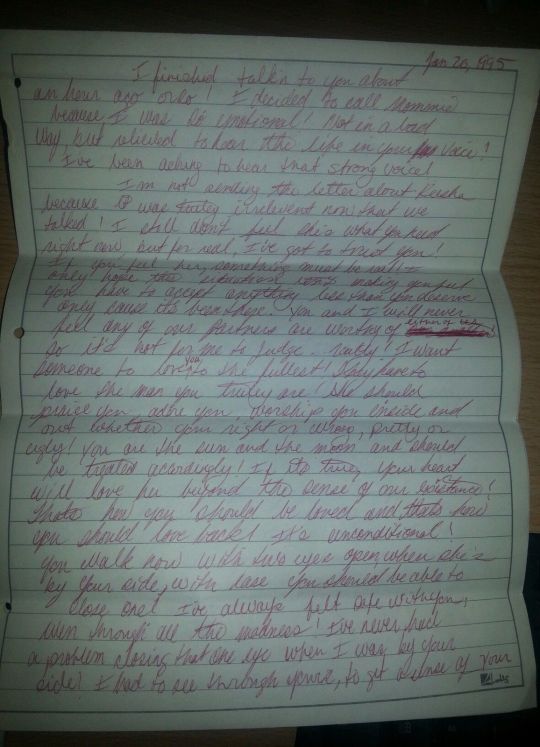 Jan 20, 1995
I finished talkin to you about
an hour ago or so! I decided to call Mommie
because I was so emotional! Not in a bad
way, but relieved to hear the life in your voice!
I've been aching to hear that strong voice!
I'm not sending the letter about Keisha
because it was truley irrelevent now that we
talked! I still don't feel she's what you need
right now but for real, I've got to trust you!
If you feel her, something must be well. I
only hope the situation isn't making you feel
you have to accept anything less than you deserve
only cause its been there. You and I will never
feel any of our partners are worthy of either of us!
so it's not for me to judge. I want
someone to love you to the fullest! They have to
love the man you truley are! She should
praise you, adore you, worship you inside and
out whether your right or wrong, pretty or
ugly! You are the sun and the moon and should
be treated acordingly! If its true, your heart
will love her beyond the sense of our existance!
Thats how you should be loved and thats how
you should love back! It's unconditional!
You walk now with two eyes open, when she's
by your side, with ease you should be able to
close one! I've always felt safe with you,
even through all the madness! I've never had
a problem closing that one eye when I was by your
side! I had to see through yours, to get a sense of your